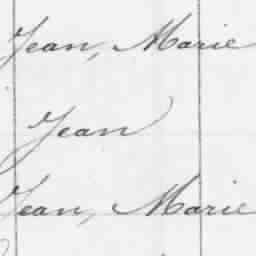 Jean, Marie
Jean
Jean, Marie